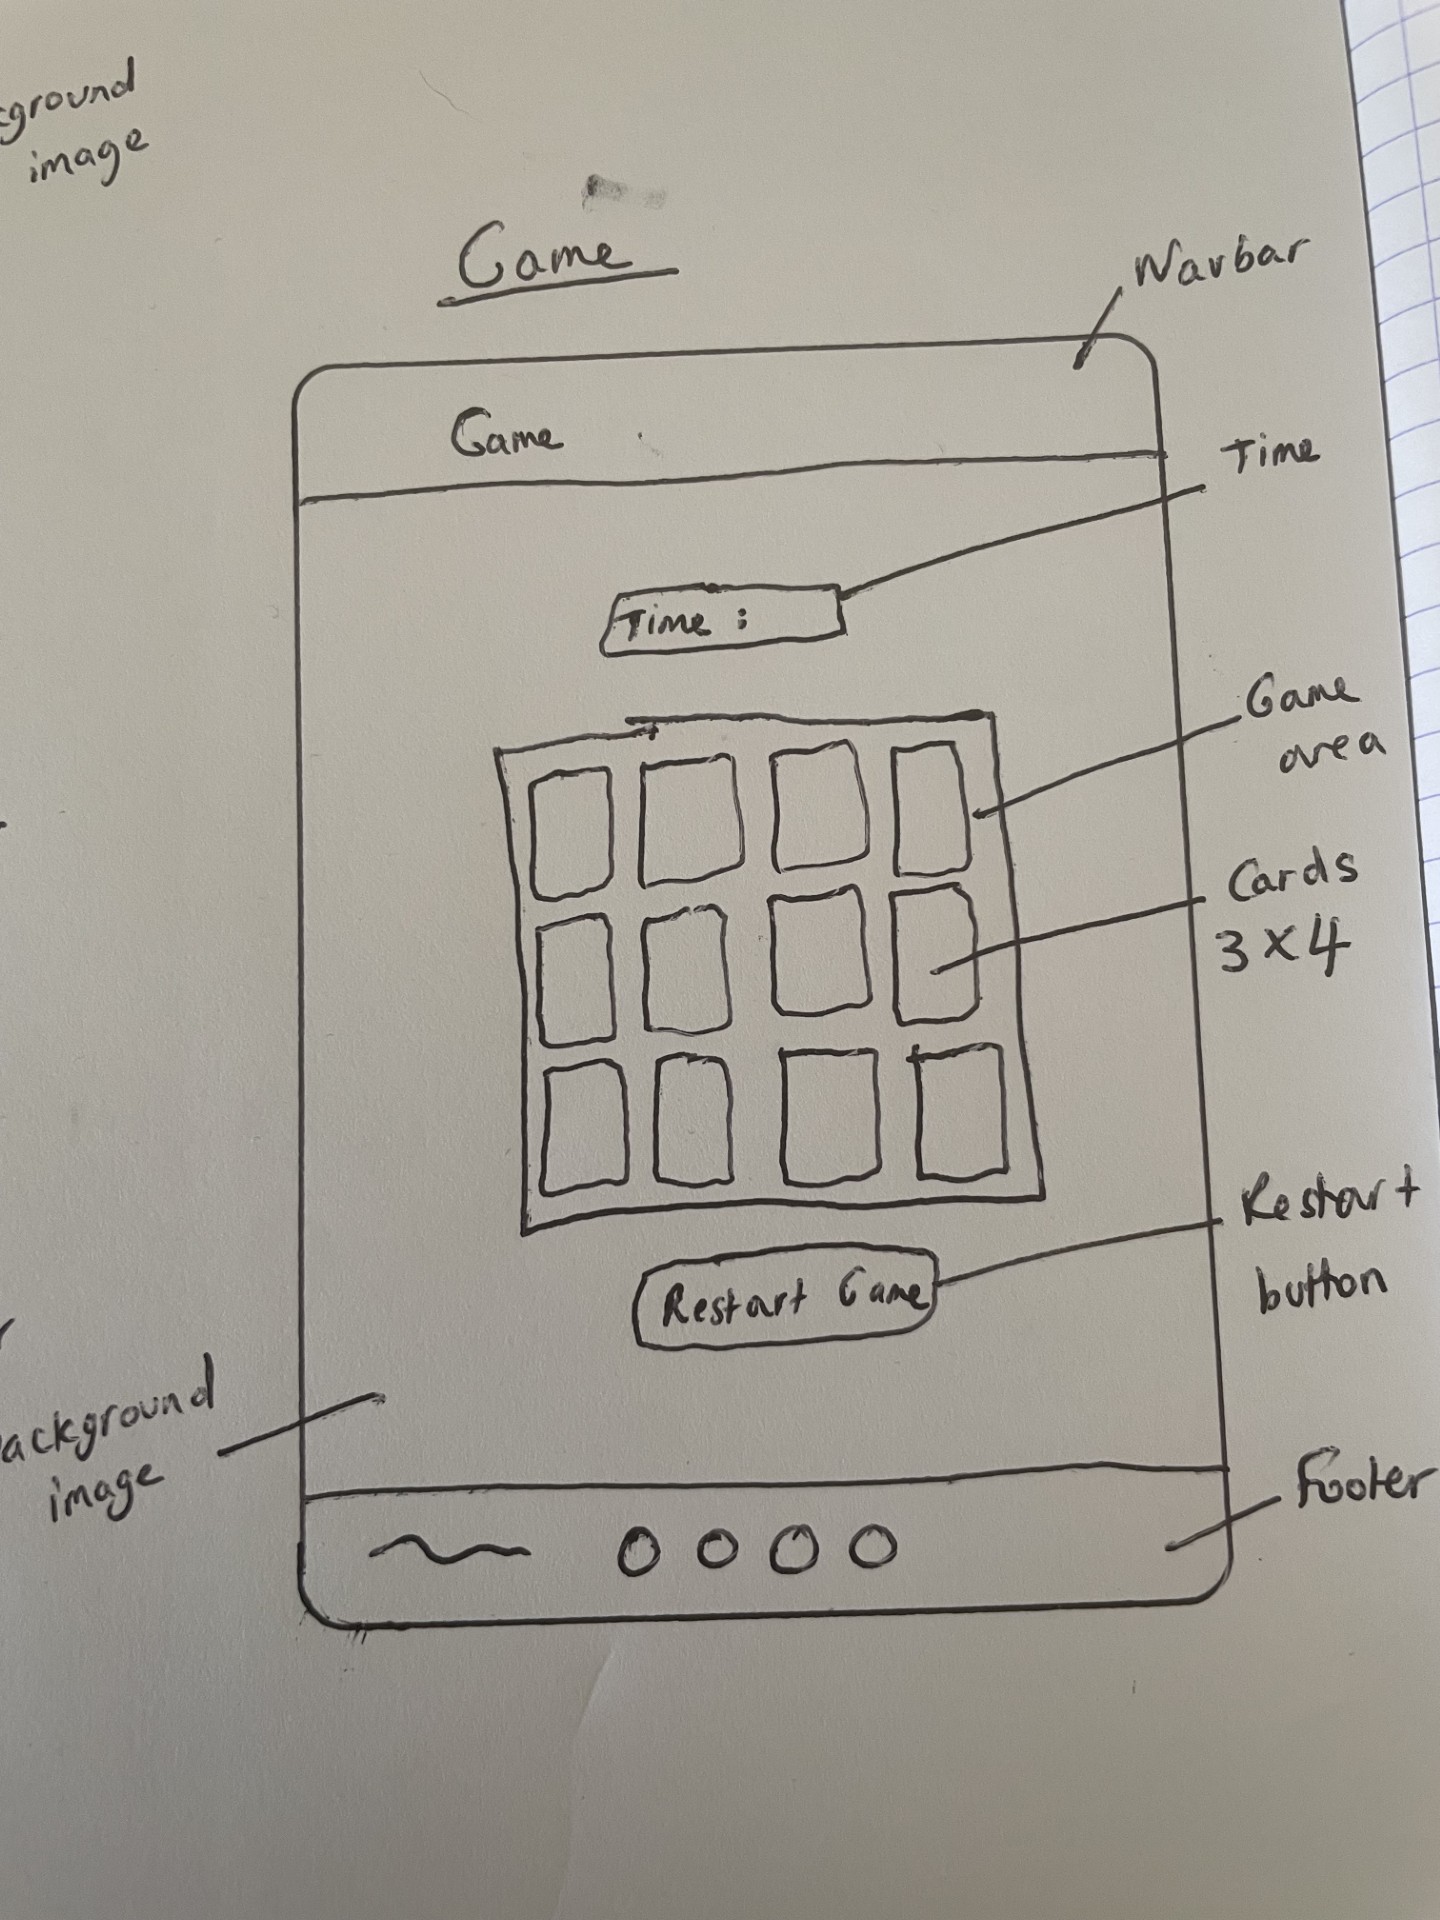 ground
image
Game
Navbar
Game
Time
Time :
Game
area
Cards
3 x 4
Restart
button
Restart Game
ackground
image
Footer